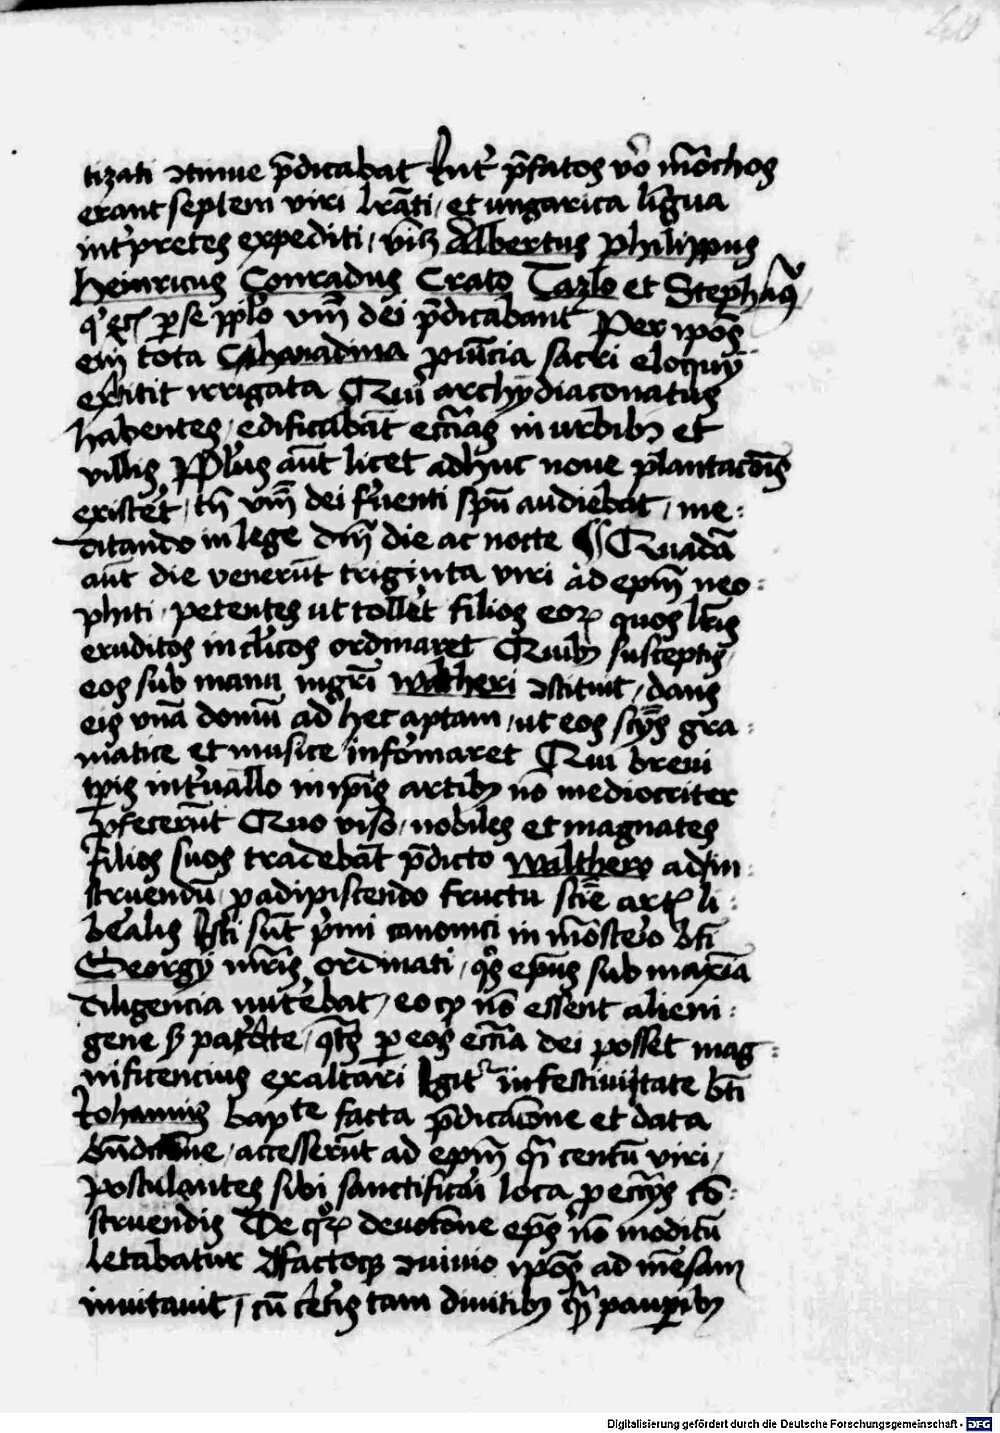 tizati ꝯtinue p̄dicabat Int᷑ p̄fatos v̓o mōchos
erant septem viri lr̄ati / et ungarica līgua
int᷑pretes expediti / vidꝫ Albertus philippus
heinricus Conradus Crato Tazlo et Stephan᷒
q͛ ꝑ se ip̄o v̄m dei p̄dicabant Per ip̄os
em̄ tota Chanadina ꝓuīcia sacri eloquij
extitit irrigata Qui archydiaconatus
habentes / edificabāt ecc̄ias in urbibꝫ et
villis Pp̄lus aūt licet adhuc noue plantacōis
existēt / tn̄ v̄m dei f᷑uenti sp̄u audiebat / me⸗
ditando in lege dn̄i die ac nocte ¶ Quadā
aūt die venerūt triginta viri ad ep̄m neo⸗
phiti / petentes ut tolleret filios eoꝝ quos lr̄is
eruditos in cl̓icos ordinaret Quibꝫ susceptis /
eos sub manu mgr̄i waltheri ꝯstituit / dans
eis vnā domū ad hec aptam / ut eos scījs gra⸗
matice et musice informaret Qui breui
tp̄is int᷑uallo in ip̄is artibꝫ nō mediocriter
ꝓfecerūt Quo viso / nobiles et magnates
filios suos tradebāt p̄dicto walthero ad in⸗
struendū / ꝓ adipiscendo fructu sciē artiū li⸗
beralis Isti sūt p̓mi canonici in mōster̓o bt̄i
Georgij mr̄is ordinati / q͛s ep̄us sub maxīa
diligencia nut᷑ebat / eo ꝙ nō essent alieni⸗
gene sꝫ pat᷑ote / qt̄s ꝑ eos ecc̄ia dei posset mag⸗
nificencius exaltari Igit᷑ in festiuitate bt̄i
Johannis bapte facta p̄dicacōne et data
bn̄dictōne / accesserūt ad ep̄m q̄i centū viri /
postulantes sibi sanctificari loca ꝓ ecc̄ijs cō⸗
struendis De qͦꝝ deuotōne ep̄s nō modicū
letabatur Factoqꝫ ꝯuiuio ip̄os ad mēsam
inuitauit / cū cet᷑is tam diuitibꝫ qᷓꝫ pauꝑibꝫ
Digitalisierung gefördert durch die Deutsche Forschungsgemeinschaft - DFG